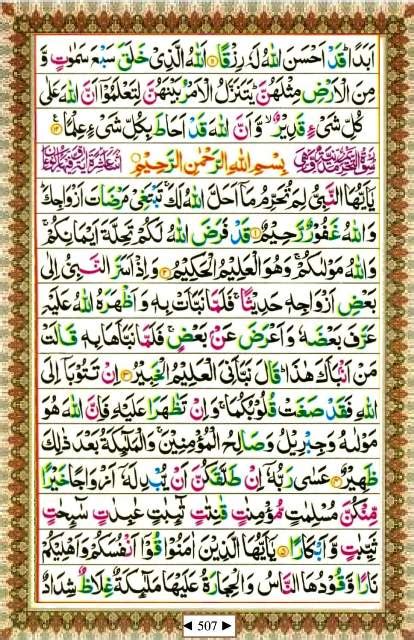 اَبَدًا ؕ قَدْ اَحْسَنَ اللّٰهُ لَهٗ رِزْقًا ﴿۱۱﴾ اَللّٰهُ الَّذِىْ خَلَقَ سَبْعَ سَمٰوٰتٍ وَّ
مِنَ الْاَرْضِ مِثْلَهُنَّ ؕ يَتَنَزَّلُ الْاَمْرُ بَيْنَهُنَّ لِتَعْلَمُوْۤا اَنَّ اللّٰهَ عَلٰى
كُلِّ شَىْءٍ قَدِيْرٌ ۙ وَّ اَنَّ اللّٰهَ قَدْ اَحَاطَ بِكُلِّ شَىْءٍ عِلْمًا ﴿۱۲﴾
بِسْمِ اللّٰهِ الرَّحْمٰنِ الرَّحِيْمِ
يٰۤاَيُّهَا النَّبِىُّ لِمَ تُحَرِّمُ مَاۤ اَحَلَّ اللّٰهُ لَكَ ۚ تَبْتَغِىْ مَرْضَاتَ اَزْوَاجِكَ ؕ
وَ اللّٰهُ غَفُوْرٌ رَّحِيْمٌ ﴿۱﴾ قَدْ فَرَضَ اللّٰهُ لَكُمْ تَحِلَّةَ اَيْمَانِكُمْ ۚ
وَ اللّٰهُ مَوْلٰىكُمْ ۚ وَهُوَ الْعَلِيْمُ الْحَكِيْمُ ﴿۲﴾ وَ اِذْ اَسَرَّ النَّبِىُّ اِلٰى
بَعْضِ اَزْوَاجِهٖ حَدِيْثًا ۚ فَلَمَّا نَبَّاَتْ بِهٖ وَ اَظْهَرَهُ اللّٰهُ عَلَيْهِ
عَرَّفَ بَعْضَهٗ وَ اَعْرَضَ عَنْۢ بَعْضٍ ۚ فَلَمَّا نَبَّاَهَا بِهٖ قَالَتْ
مَنْ اَنْۢبَاَكَ هٰذَا ؕ قَالَ نَبَّاَنِىَ الْعَلِيْمُ الْخَبِيْرُ ﴿۳﴾ اِنْ تَتُوْبَاۤ اِلَى
اللّٰهِ فَقَدْ صَغَتْ قُلُوْبُكُمَا ۚ وَ اِنْ تَظٰهَرَا عَلَيْهِ فَاِنَّ اللّٰهَ هُوَ
مَوْلٰىهُ وَ جِبْرِيْلُ وَ صَالِحُ الْمُؤْمِنِيْنَ ۚ وَ الْمَلٰٓئِكَةُ بَعْدَ ذٰلِكَ
ظَهِيْرٌ ﴿۴﴾ عَسٰى رَبُّهٗۤ اِنْ طَلَّقَكُنَّ اَنْ يُّبْدِلَهٗۤ اَزْوَاجًا خَيْرًا
مِّنْكُنَّ مُسْلِمٰتٍ مُّؤْمِنٰتٍ قٰنِتٰتٍ تٰٓئِبٰتٍ عٰبِدٰتٍ سٰٓئِحٰتٍ
ثَيِّبٰتٍ وَّ اَبْكَارًا ﴿۵﴾ يٰۤاَيُّهَا الَّذِيْنَ اٰمَنُوْا قُوْۤا اَنْفُسَكُمْ وَ اَهْلِيْكُمْ
نَارًا وَّ قُوْدُهَا النَّاسُ وَ الْحِجَارَةُ عَلَيْهَا مَلٰٓئِكَةٌ غِلَاظٌ شِدَادٌ
507